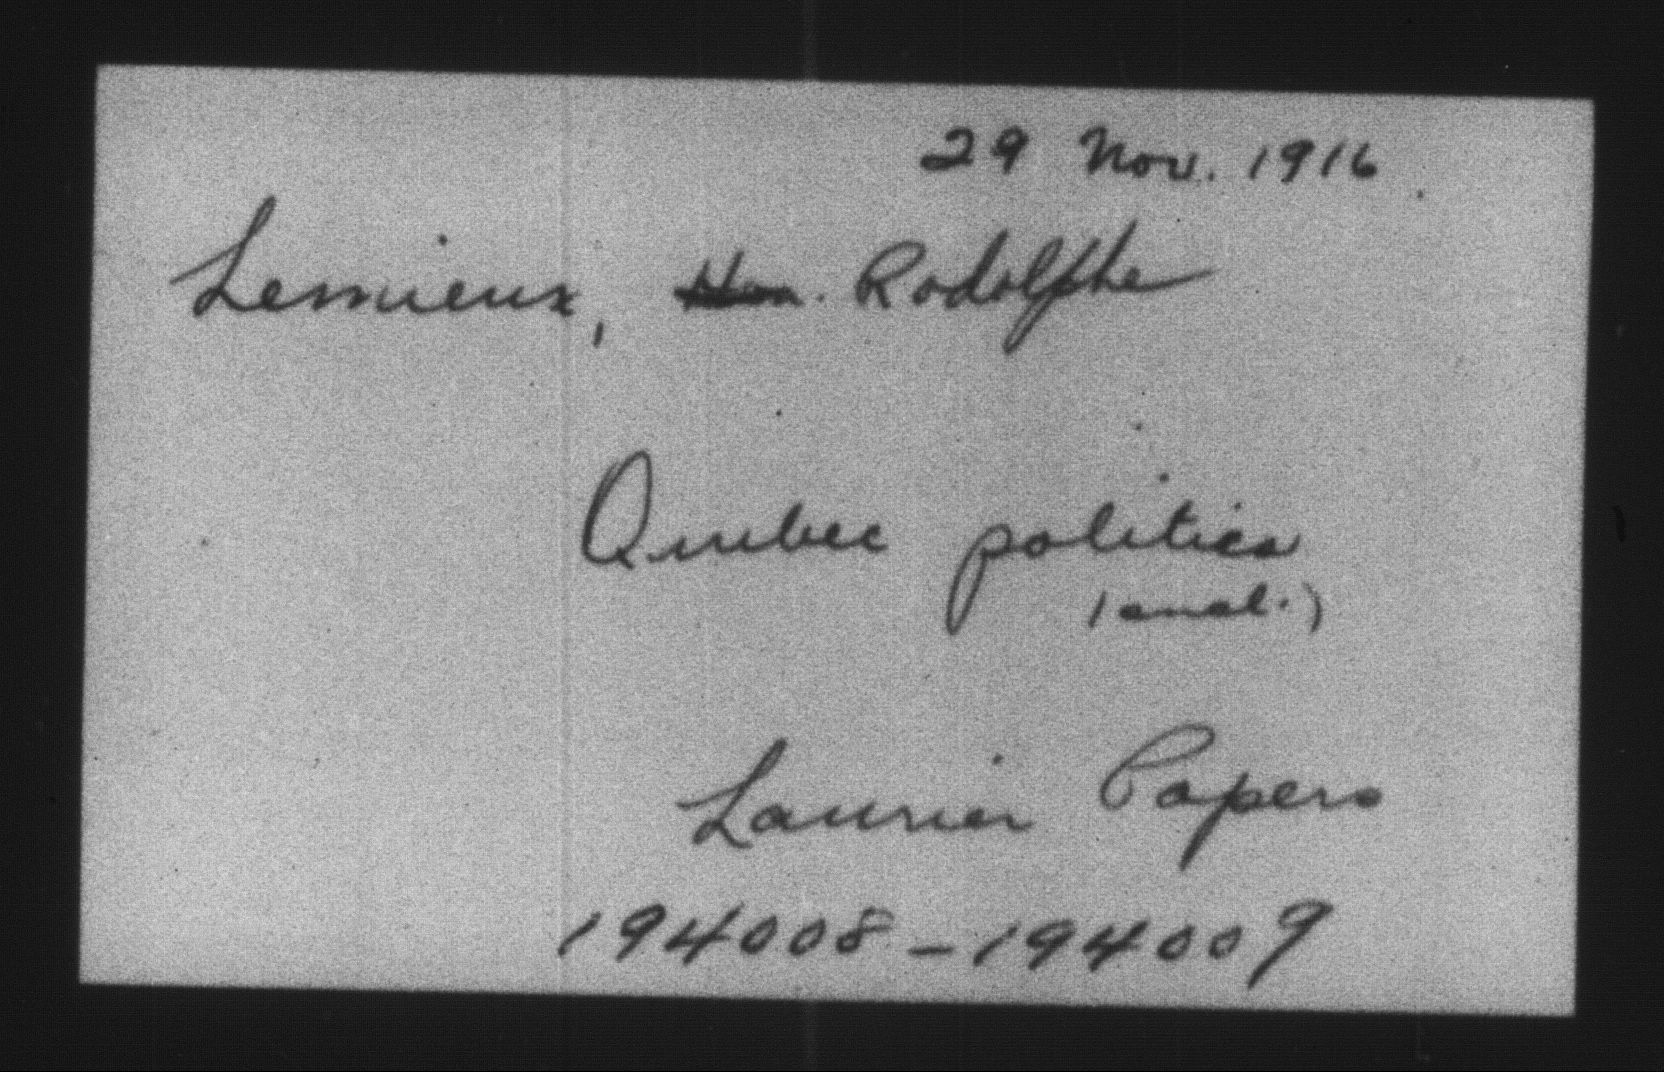 29 Nov. 1916.
Lemieux, Hon. Rodolphe
Quebec politics
(encl.)
Laurier Papers
194008-194009